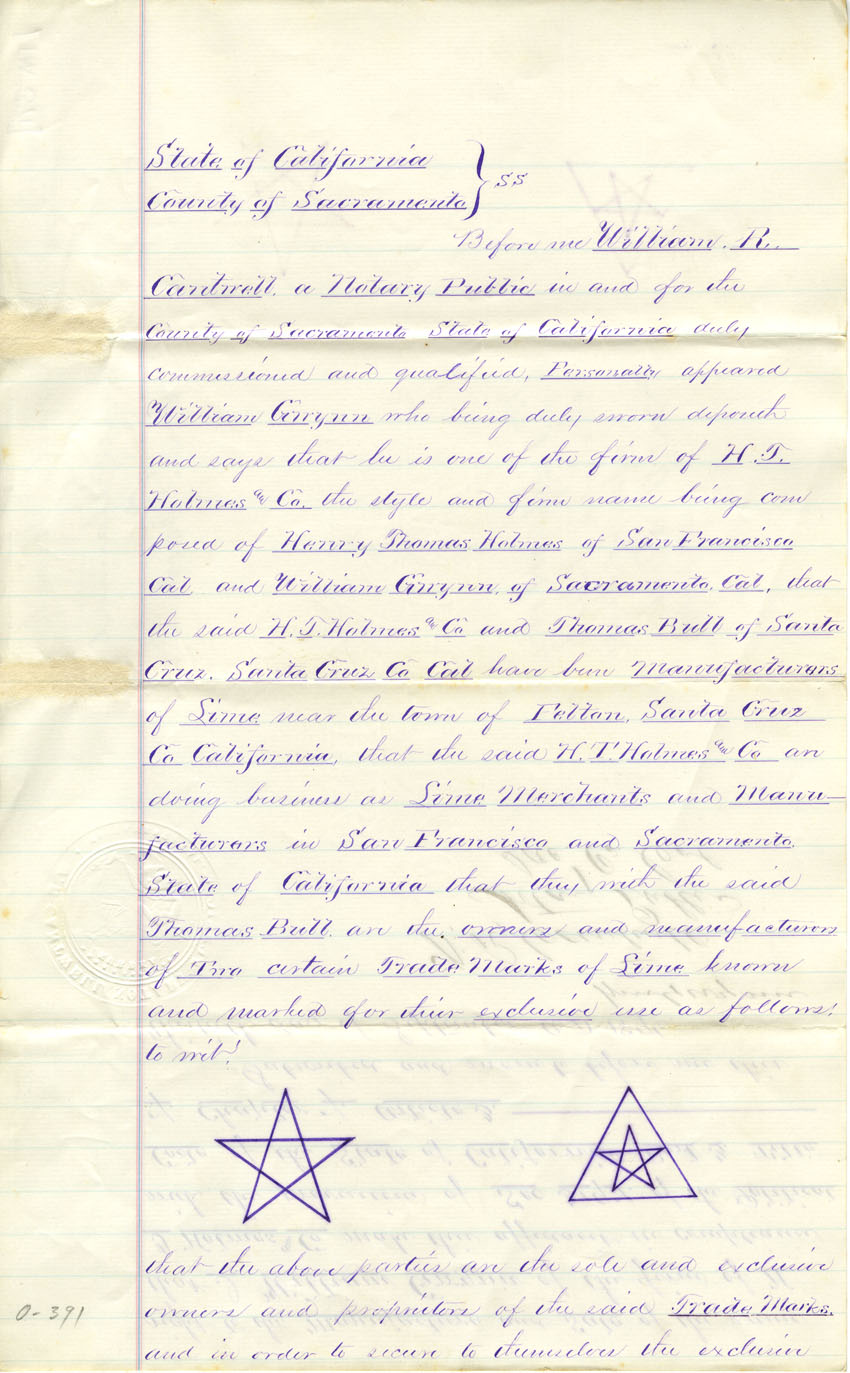 State of California
County of Sacramento } SS
Before me William. R.
Cantwell. a Notary Public in and for the
County of Sacramento State of California duly
commissioned and qualified, Personally appeared
William Gwynn who being duly sworn deposeth
and says that he is one of the firm of H. T.
Holmes & Co. the style and firm name being com
posed of Henry Thomas Holmes of San Francisco
Cal and William Gwynn, of Sacramento, Cal, that
the said H. T. Holmes & Co and Thomas Bull of Santa
Cruz. Santa Cruz Co Cal have been Manufacturers
of Lime near the town of Felton, Santa Cruz
Co California, that the said H. T. Holmes & Co are
doing business as Lime Merchants and Manu-
facturers in San Francisco and Sacramento.
State of California that they with the said
Thomas Bull. are the owners and manufacturers
of Two certain Trade Marks of Lime known
and marked for their exclusive use as follows!
to wit!
that the above parties are the sole and exclusive
owners and proprietors of the said Trade Marks.
and in order to secure to themselves the exclusive
0-391